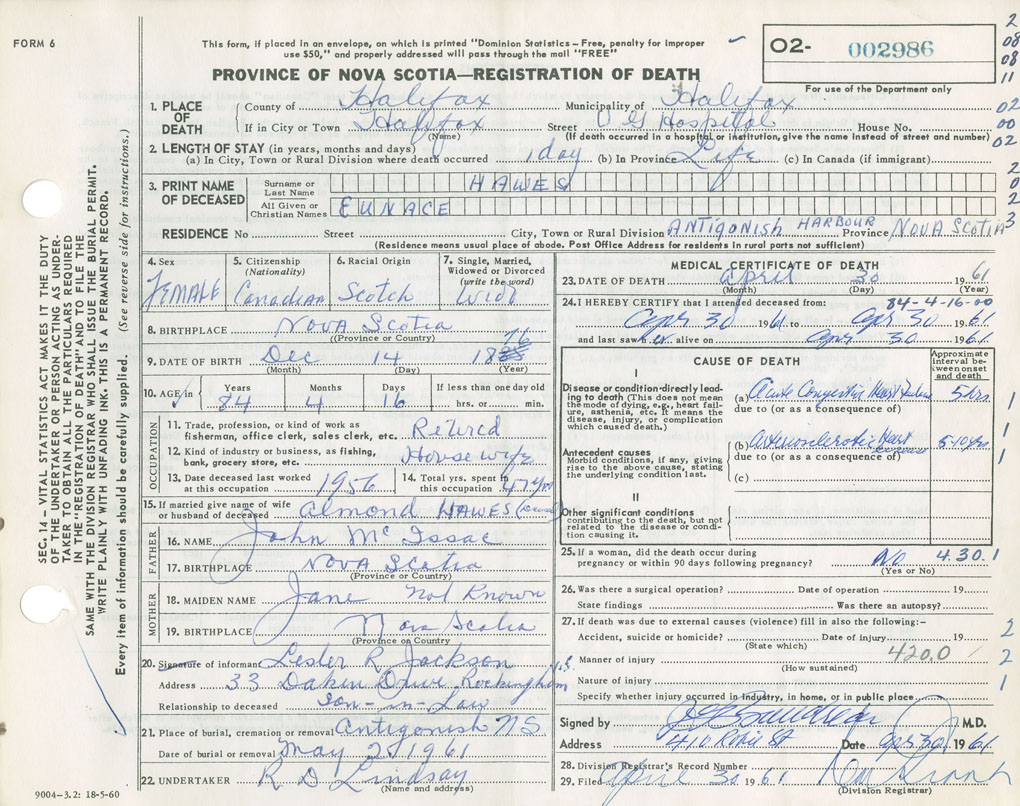 FORM 6
This form, if placed in an envelope, on which is printed "Dominion Statistics – Free, penalty for improper
use $50," and properly addressed will pass through the mail "FREE"
O2- 002986
For use of the Department only
PROVINCE OF NOVA SCOTIA—REGISTRATION OF DEATH
1. PLACE OF DEATH
County of Halifax Municipality of Halifax
If in City or Town Halifax Street V G Hospital House No.
(Name) (If death occurred in a hospital or institution, give the name instead of street and number)
2. LENGTH OF STAY (in years, months and days)
(a) In City, Town or Rural Division where death occurred 1 day (b) In Province Life (c) In Canada (if immigrant)
3. PRINT NAME OF DECEASED
Surname or Last Name HAWES
All Given or Christian Names EUNACE
RESIDENCE No Street City, Town or Rural Division ANTIGONISH HARBOUR Province NOVA SCOTIA
(Residence means usual place of abode. Post Office Address for residents in rural parts not sufficient)
4. Sex FEMALE
5. Citizenship (Nationality) Canadian
6. Racial Origin Scotch
7. Single, Married, Widowed or Divorced (write the word) Wid
8. BIRTHPLACE NOVA SCOTIA
(Province or Country)
9. DATE OF BIRTH Dec 14 18 76
(Month) (Day) (Year)
10. AGE in Years Months Days If less than one day old
84 4 16 hrs. or min.
OCCUPATION
11. Trade, profession, or kind of work as
fisherman, office clerk, sales clerk, etc. Retired
12. Kind of industry or business, as fishing,
bank, grocery store, etc. Housewife
13. Date deceased last worked
at this occupation 1956
14. Total yrs. spent in
this occupation 47 yrs
15. If married give name of wife
or husband of deceased Almond HAWES
FATHER
16. NAME John McIssac
17. BIRTHPLACE NOVA SCOTIA
(Province or Country)
MOTHER
18. MAIDEN NAME Jane Not Known
19. BIRTHPLACE Nova Scotia
(Province or Country)
20. Signature of informant Lester R Jackson
Address 33 Dakin Drive Rockingham N.S.
Relationship to deceased Son-in-Law
21. Place of burial, cremation or removal Antigonish NS
Date of burial or removal May 2, 1961
22. UNDERTAKER R D Lindsay
(Name and address)
9004–3.2: 18-5-60
MEDICAL CERTIFICATE OF DEATH
23. DATE OF DEATH April 30 1961
(Month) (Day) (Year)
24. I HEREBY CERTIFY that I attended deceased from: 84-4-16-00
Apr 30 1961 to Apr 30 1961
and last saw her alive on Apr 30 1961
CAUSE OF DEATH
Approximate interval between onset and death
I
Disease or condition directly leading to death (This does not mean the mode of dying, e.g., heart failure, asthenia, etc. It means the disease, injury, or complication which caused death.)
(a) Acute Congestive Heart Failure 5 hrs
due to (or as a consequence of)
Antecedent causes
Morbid conditions, if any, giving rise to the above cause, stating the underlying condition last.
(b) Arteriosclerotic Heart 5-10 yrs
due to (or as a consequence of)
(c)
II
Other significant conditions
contributing to the death, but not related to the disease or condition causing it.
25. If a woman, did the death occur during
pregnancy or within 90 days following pregnancy? No 4.30.1
(Yes or No)
26. Was there a surgical operation? Date of operation 19
State findings Was there an autopsy?
27. If death was due to external causes (violence) fill in also the following:–
Accident, suicide or homicide? Date of injury 19
(State which)
Manner of injury 420.0
(How sustained)
Nature of injury
Specify whether injury occurred in industry, in home, or in public place
Signed by M.D.
Address 410 Robie St Date Apr 30, 1961
28. Division Registrar's Record Number
29. Filed April 30 1961
(Division Registrar)
SEC. 14 – VITAL STATISTICS ACT MAKES IT THE DUTY
OF THE UNDERTAKER OR PERSON ACTING AS UNDER-
TAKER TO OBTAIN ALL THE PARTICULARS REQUIRED
IN THE "REGISTRATION OF DEATH" AND TO FILE THE
SAME WITH THE DIVISION REGISTRAR WHO SHALL ISSUE THE BURIAL PERMIT.
WRITE PLAINLY WITH UNFADING INK. THIS IS A PERMANENT RECORD.
Every item of information should be carefully supplied. (See reverse side for instructions.)
2
08
08
11
02
00
02
2
0
2
3
1
1
1
2
2
1